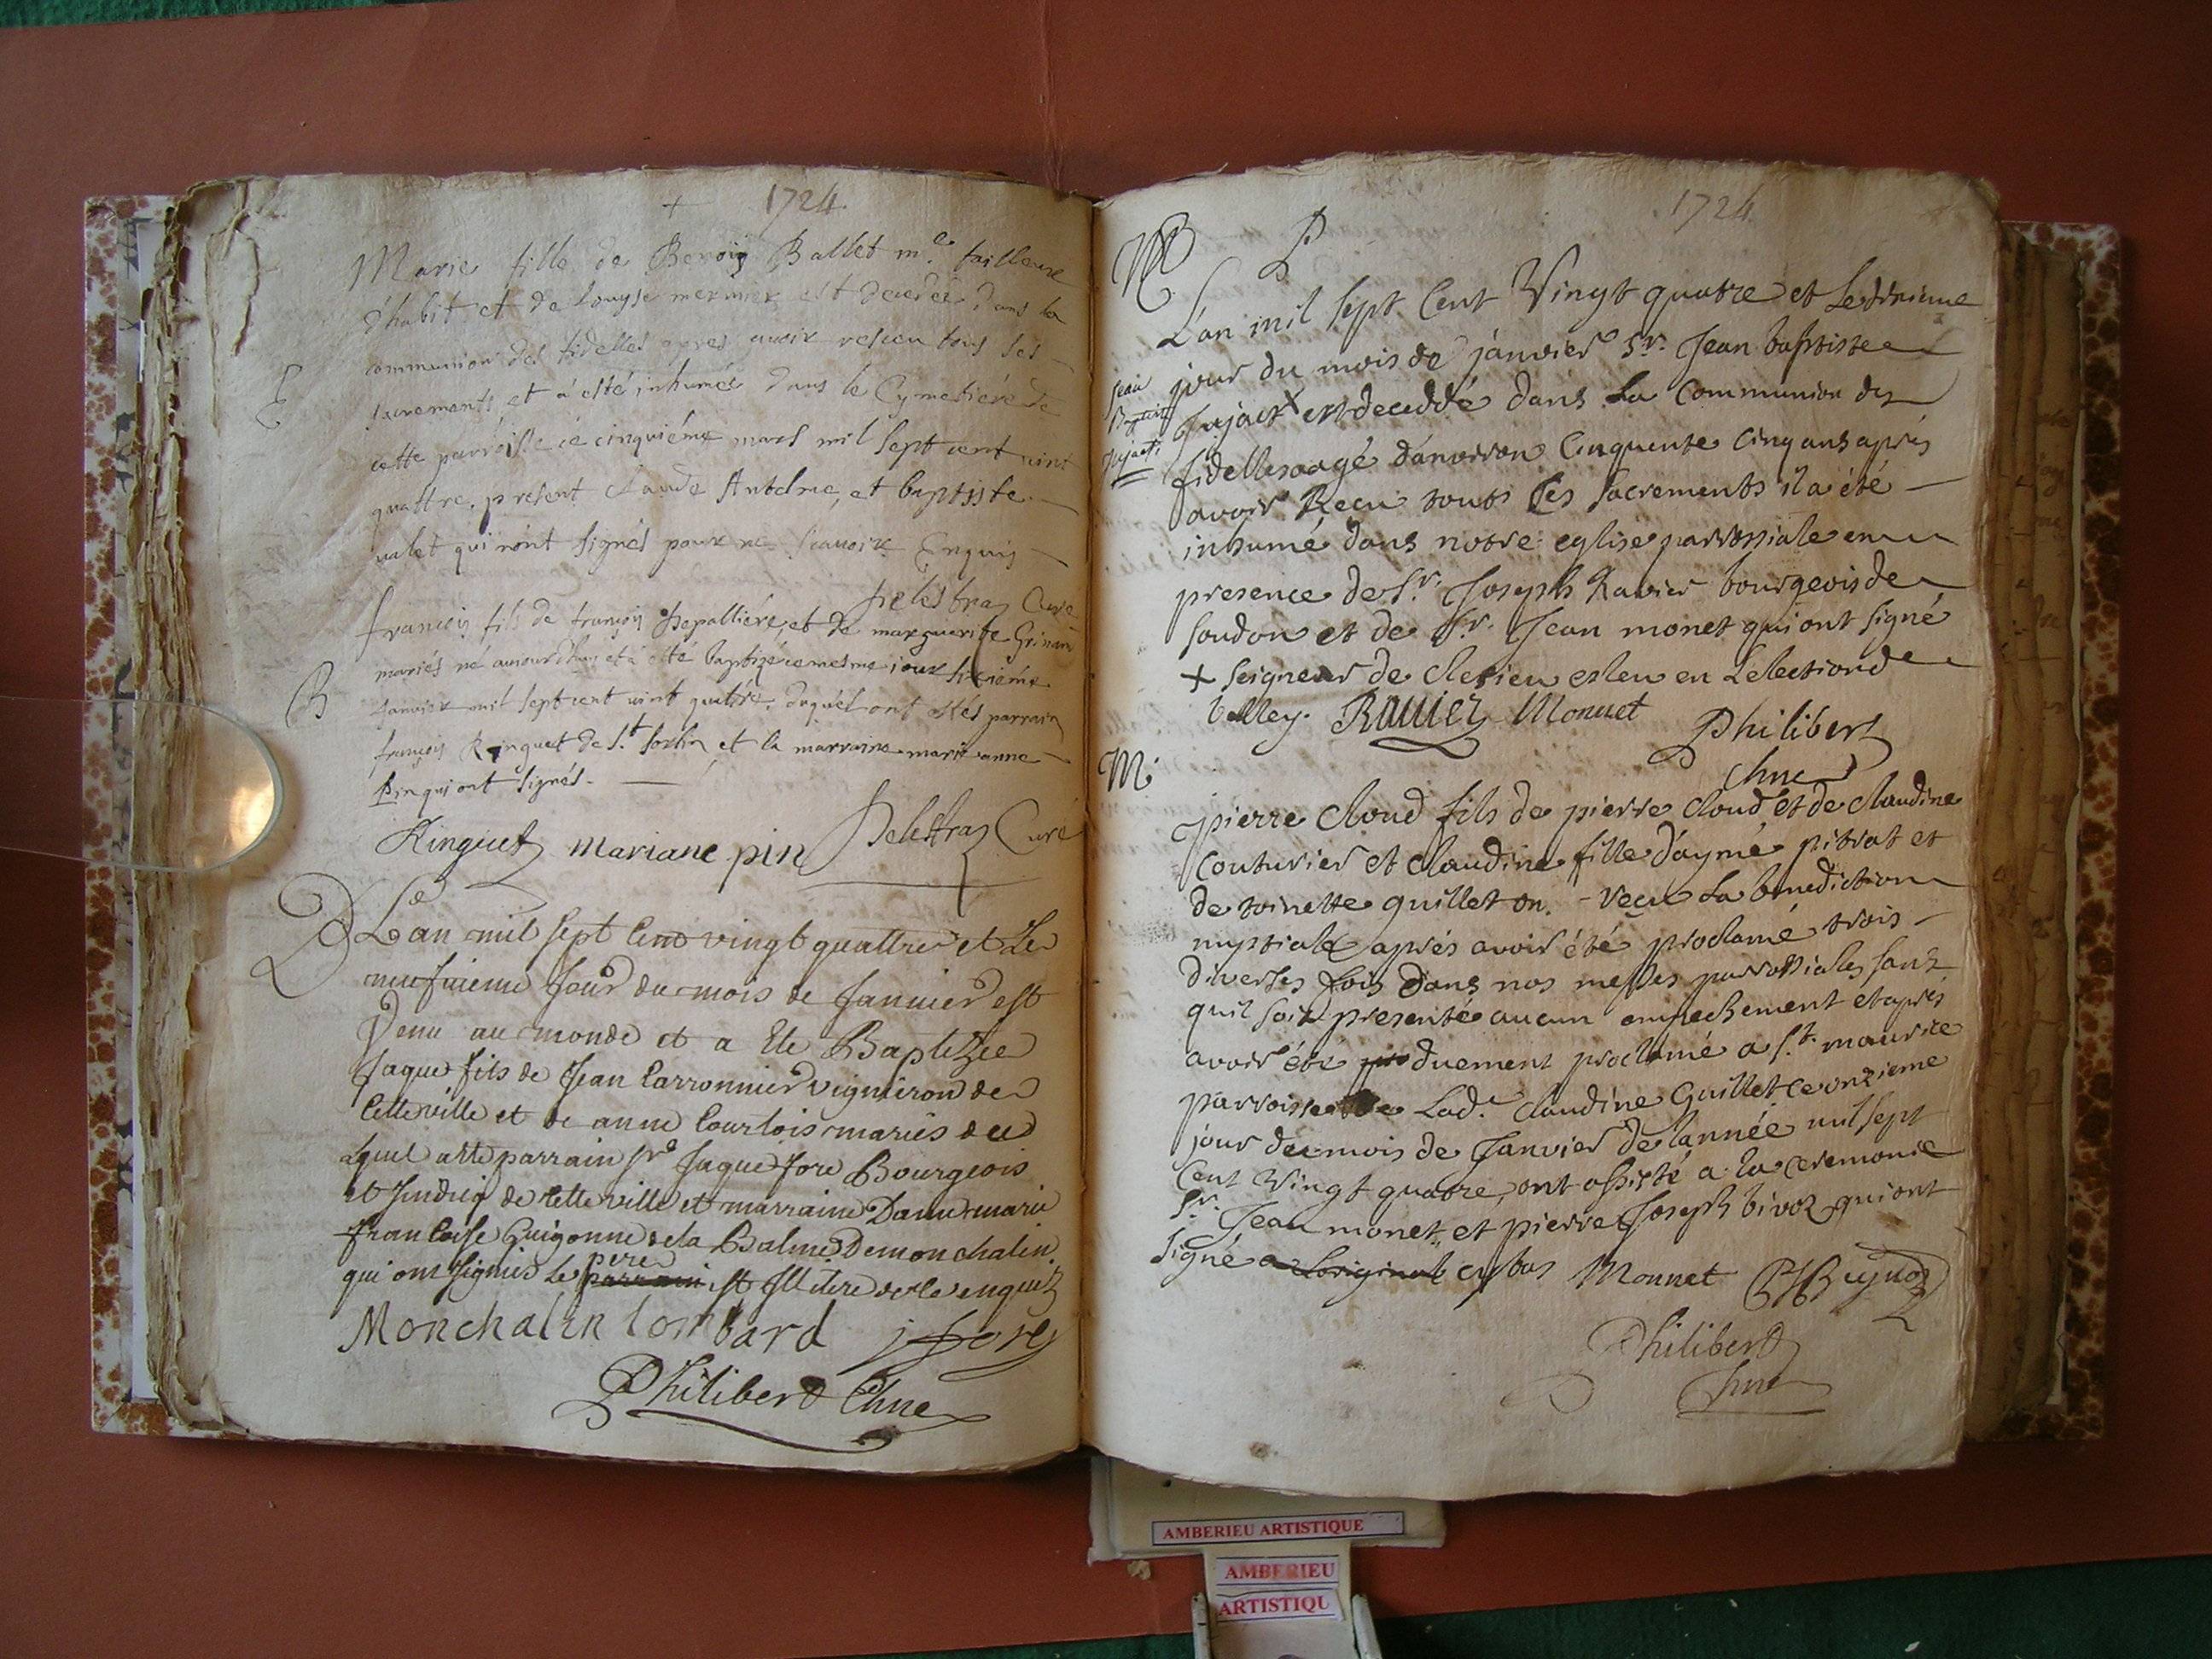 + 1724
Marie fille de Benoiy Ballet m.e tailleur
d'habit et de Louyse mermier est decedeé dans la
communion des fidelles apres auoir resceu tous ses
E
sacrements et à esté inhumeé dans le Cymetiére de
cette parroisse ce cinquiéme mars mil sept cent uint
quattre. present claude Antelme, et baptiste
ualet qui n'ont signés pour ne scauoir Enquis
Delestraz Curé
francois fils de françois et de marguerite
mariés né aujourdhuy et a esté baptizé ce mesme jour sixiéme
B
Januier mil sept cent uint quatre. duquél ont estés parrain
françois Ringuet de S.t Sorlin et la marraine marie anne
Pin qui ont signés.
Ringuet mariane pin Delestraz Curé
B
L'an mil sept Cent vingt quattre et Le
neufuieme Jour du mois de Januier est
Venu au monde et a Ete Baptizée
Jaque fils de Jean Carronnier vigniron de
Cette ville et de anne Courtois mariés du
quel a ete parrain Sr Jaque fore Bourgeois
et sindic de cette ville et marraine Dame marie
francoise Guigonne de la Balme Demonchalin
qui ont signiés Le parrain pere est Illitere de ce enquis
Monchalin lombard j fore
Philibert Chne
1724
L'an mil sept Cent Vingt quatre et Le dixieme
jour du mois de janvier Sr. Jean baptiste
Jean
Baptiste
Jujact
Jujact + est deceddé dans La Communion des
fidelles aagé d'anviron Cinquente Cinq ans aprés
avoir Reçu touts Ses Sacrements il a été
inhumé dans notre eglise parrossiale en
presence de Sr. Joseph Ravier bourgeois de
Soudon et de Sr. Jean monet qui ont signé
+ Seigneur de eleu en L'election de
belley. Rauier Monnet Philibert
Chne
M.
pierre Cloud fils de pierre Cloud et de Claudine
Couturier et Claudine fille d'aymé pitrat et
de toinette quilleton. Reçu La benediction
nuptiale aprés avoir été proclamé trois
diverses fois dans nos messes parrossiales sans
quil soit presenté aucun ampechement et aprés
avoir été duement proclamé a St. maurice
parroisse de Lad.e Claudine Guillet ce onzieme
jour du mois de Janvier de lannée mil sept
Cent Vingt quatre, ont assisté a la ceremonie
Sr. Jean monet et pierre Joseph qui ont
signé a Loriginal cy bas Monnet
Philibert
Chne
AMBERIEU ARTISTIQUE
AMBERIEU
ARTISTIQU